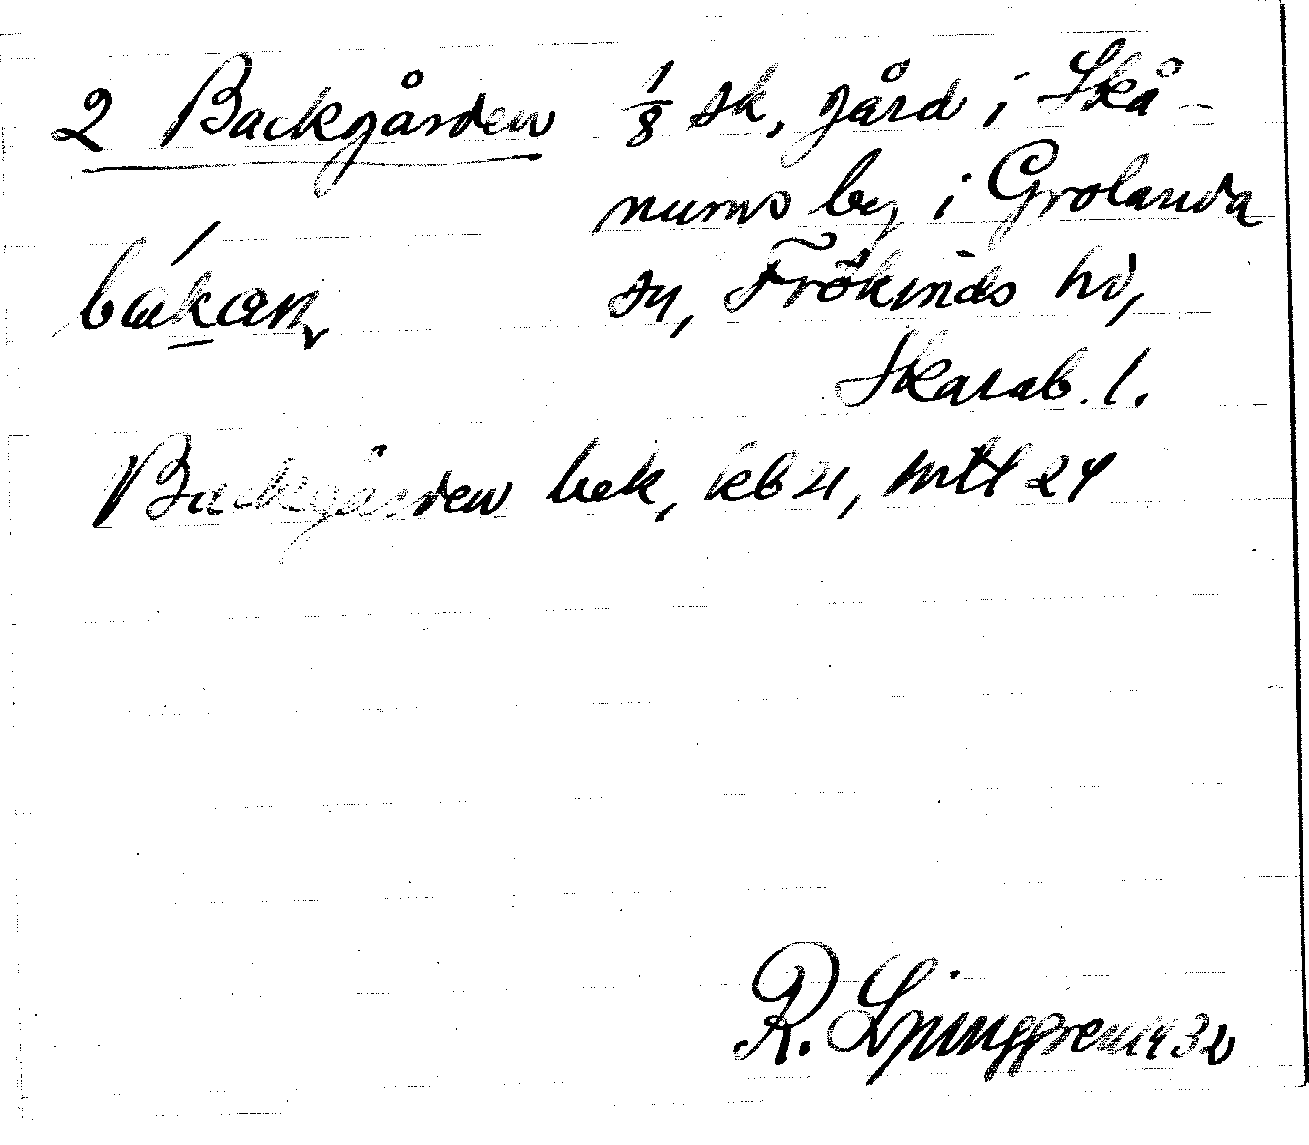 2 Backgården 1/8 sk, gård i Skå-
nums by i Grolanda
sn, Frökinds hd,
Skarab. l.
Backgården bek, jeb 21, mtl 24
R. Ljunggren 1932